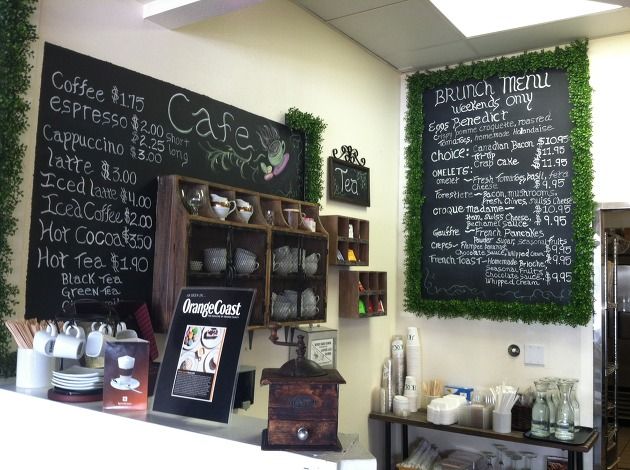 Cafe
Coffee $1.75
espresso $2.00 short
$2.25 long
Cappuccino $3.00
latte $3.00
Iced latte $4.00
Iced Coffee $2.00
Hot Cocoa $3.50
Hot Tea $1.90
Black Tea
Green Tea
Tea
OrangeCoast
BRUNCH MENU
weekends only
Eggs Benedict
crispy pomme croquette, roasted
Tomatoes, homemade Hollandaise
CHOICE: Canadian Bacon $10.95
Tri-tip $11.95
Crap Cake $11.95
OMELETS:
omelet ~ Fresh Tomatoes, basil, feta
Cheese $9.95
Forestiere ~ Bacon, mushrooms,
Fresh chives, swiss Cheese $9.95
CROQUE Madame ~ $10.95
Ham, swiss Cheese, $9.95
Bechamel sauce
Gauffre ~ French Pancakes
Powder Sugar, Seasonal Fruits $9.95
CREPES ~ Flambee Bananas,
Chocolate Sauce, Whipped Cream $9.95
French Toast ~ Homemade Brioche,
Seasonal Fruits $9.95
Chocolate Sauce,
Whipped Cream